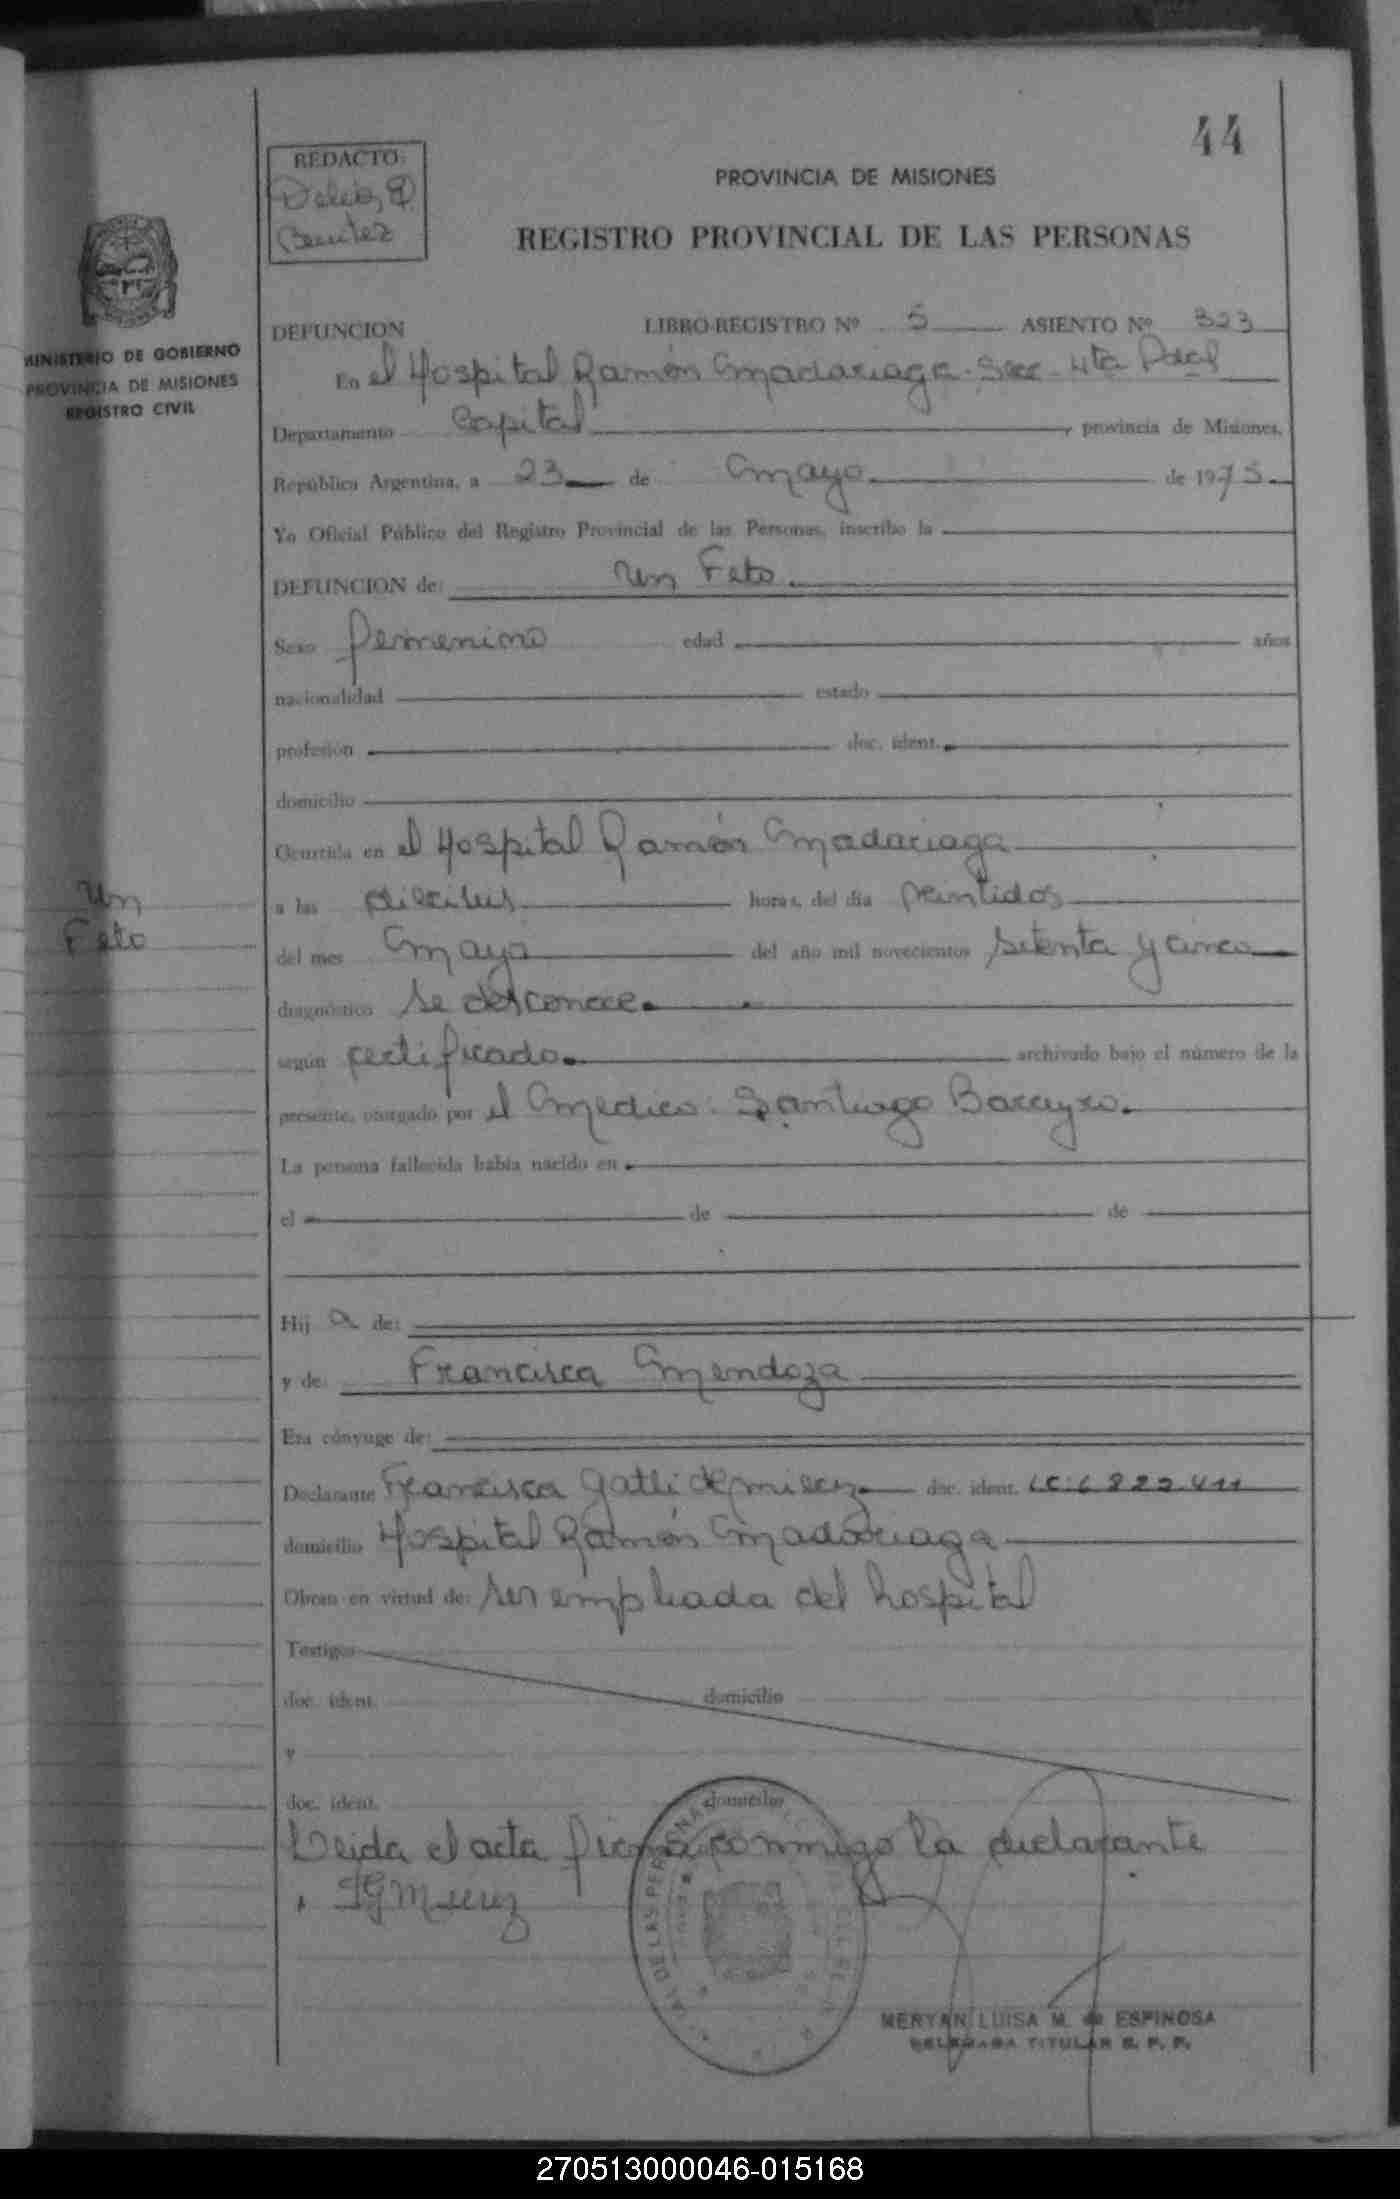 44
REDACTO:
Benitez
PROVINCIA DE MISIONES
REGISTRO PROVINCIAL DE LAS PERSONAS
MINISTERIO DE GOBIERNO
PROVINCIA DE MISIONES
REGISTRO CIVIL
DEFUNCION LIBRO-REGISTRO Nº 5 ASIENTO Nº 323
En el Hospital Ramón Madariaga. Secc. 4ta Pdas
Departamento Capital, provincia de Misiones,
República Argentina, a 23 de Mayo de 1975.
Yo Oficial Público del Registro Provincial de las Personas, inscribo la
DEFUNCION de: Un Feto.
Sexo femenino edad años
nacionalidad estado
profesión doc. ident.
domicilio
Ocurrida en el Hospital Ramón Madariaga
Un
Feto
a las horas, del día veintidos
del mes Mayo del año mil novecientos setenta y cinco
diagnóstico se desconoce.
según certificado. archivado bajo el número de la
presente, otorgado por el Medico: Santiago Barreyro.
La persona fallecida había nacido en
el de de
Hij a de:
y de: Francisca Mendoza
Era cónyuge de:
Declarante Francisca Gatti de doc. ident. LC: 6 822.411
domicilio Hospital Ramón Madariaga
Obran en virtud de: ser empleada del hospital
Testigos
doc. ident. domicilio
y
doc. ident. domicilio
Leida el acta firma conmigo la declarante
AL DE LAS PERSONAS
MERYAN LUISA M. de ESPINOSA
DELEGADA TITULAR R. P. P.
270513000046-015168